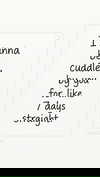 anna
I
cuddle
of you...
..for..like
7 days
..straight